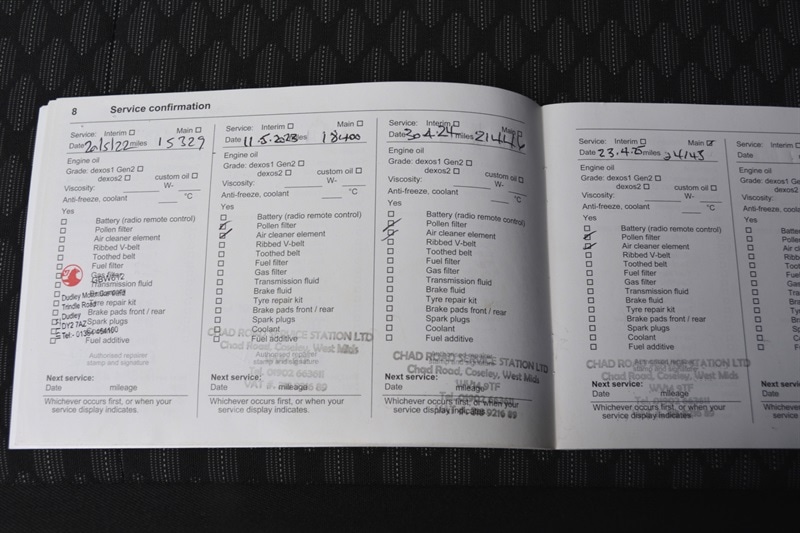 8 Service confirmation
Service: Interim ☐ Main ☐
Date 20/5/22 miles 15329
Engine oil
Grade: dexos1 Gen2 ☐
dexos2 ☐ custom oil ☐
Viscosity: W-
Anti-freeze, coolant °C
Yes
☐ Battery (radio remote control)
☐ Pollen filter
☐ Air cleaner element
☐ Ribbed V-belt
☐ Toothed belt
☐ Fuel filter
☐ Gas filter
☐ Transmission fluid
☐ Brake fluid
☐ Tyre repair kit
☐ Brake pads front / rear
☐ Spark plugs
☐ Coolant
☐ Fuel additive
Trindle Road
Dudley
DY2 7AZ
Authorised repairer
stamp and signature
Next service:
Date mileage
Whichever occurs first, or when your
service display indicates.
Service: Interim ☐ Main ☐
Date 11.5.2023 miles 18400
Engine oil
Grade: dexos1 Gen2 ☐
dexos2 ☐ custom oil ☐
Viscosity: W-
Anti-freeze, coolant °C
Yes
☐ Battery (radio remote control)
☑ Pollen filter
☑ Air cleaner element
☐ Ribbed V-belt
☐ Toothed belt
☐ Fuel filter
☐ Gas filter
☐ Transmission fluid
☐ Brake fluid
☐ Tyre repair kit
☐ Brake pads front / rear
☐ Spark plugs
☐ Coolant
☐ Fuel additive
CHAD ROAD SERVICE STATION LTD
Chad Road, Coseley, West Mids
Authorised repairer
stamp and signature
Tel: 01902 663811
Next service:
Date mileage
Whichever occurs first, or when your
service display indicates.
Service: Interim ☐ Main
Date 30.4.24 miles
Engine oil
Grade: dexos1 Gen2 ☐
dexos2 ☐ custom oil ☐
Viscosity: W-
Anti-freeze, coolant °C
Yes
☐ Battery (radio remote control)
☑ Pollen filter
☑ Air cleaner element
☐ Ribbed V-belt
☐ Toothed belt
☐ Fuel filter
☐ Gas filter
☐ Transmission fluid
☐ Brake fluid
☐ Tyre repair kit
☐ Brake pads front / rear
☐ Spark plugs
☐ Coolant
☐ Fuel additive
CHAD ROAD SERVICE STATION LTD
Chad Road, Coseley, West Mids
WV14 9TF
Next service:
Date mileage
Whichever occurs first, or when your
service display indicates.
Service: Interim ☐ Main ☑
Date 23.4.25 miles 24145
Engine oil
Grade: dexos1 Gen2 ☐
dexos2 ☐ custom oil ☐
Viscosity: W-
Anti-freeze, coolant °C
Yes
☐ Battery (radio remote control)
☑ Pollen filter
☑ Air cleaner element
☐ Ribbed V-belt
☐ Toothed belt
☐ Fuel filter
☐ Gas filter
☐ Transmission fluid
☐ Brake fluid
☐ Tyre repair kit
☐ Brake pads front / rear
☐ Spark plugs
☐ Coolant
☐ Fuel additive
CHAD ROAD SERVICE STATION LTD
Chad Road, Coseley, West Mids
WV14 9TF
Next service:
Date mileage
Whichever occurs first, or when your
service display indicates.
Service:
Date
Engine oil
Grade: dexos1
Viscosity:
Anti-freeze, co
Yes